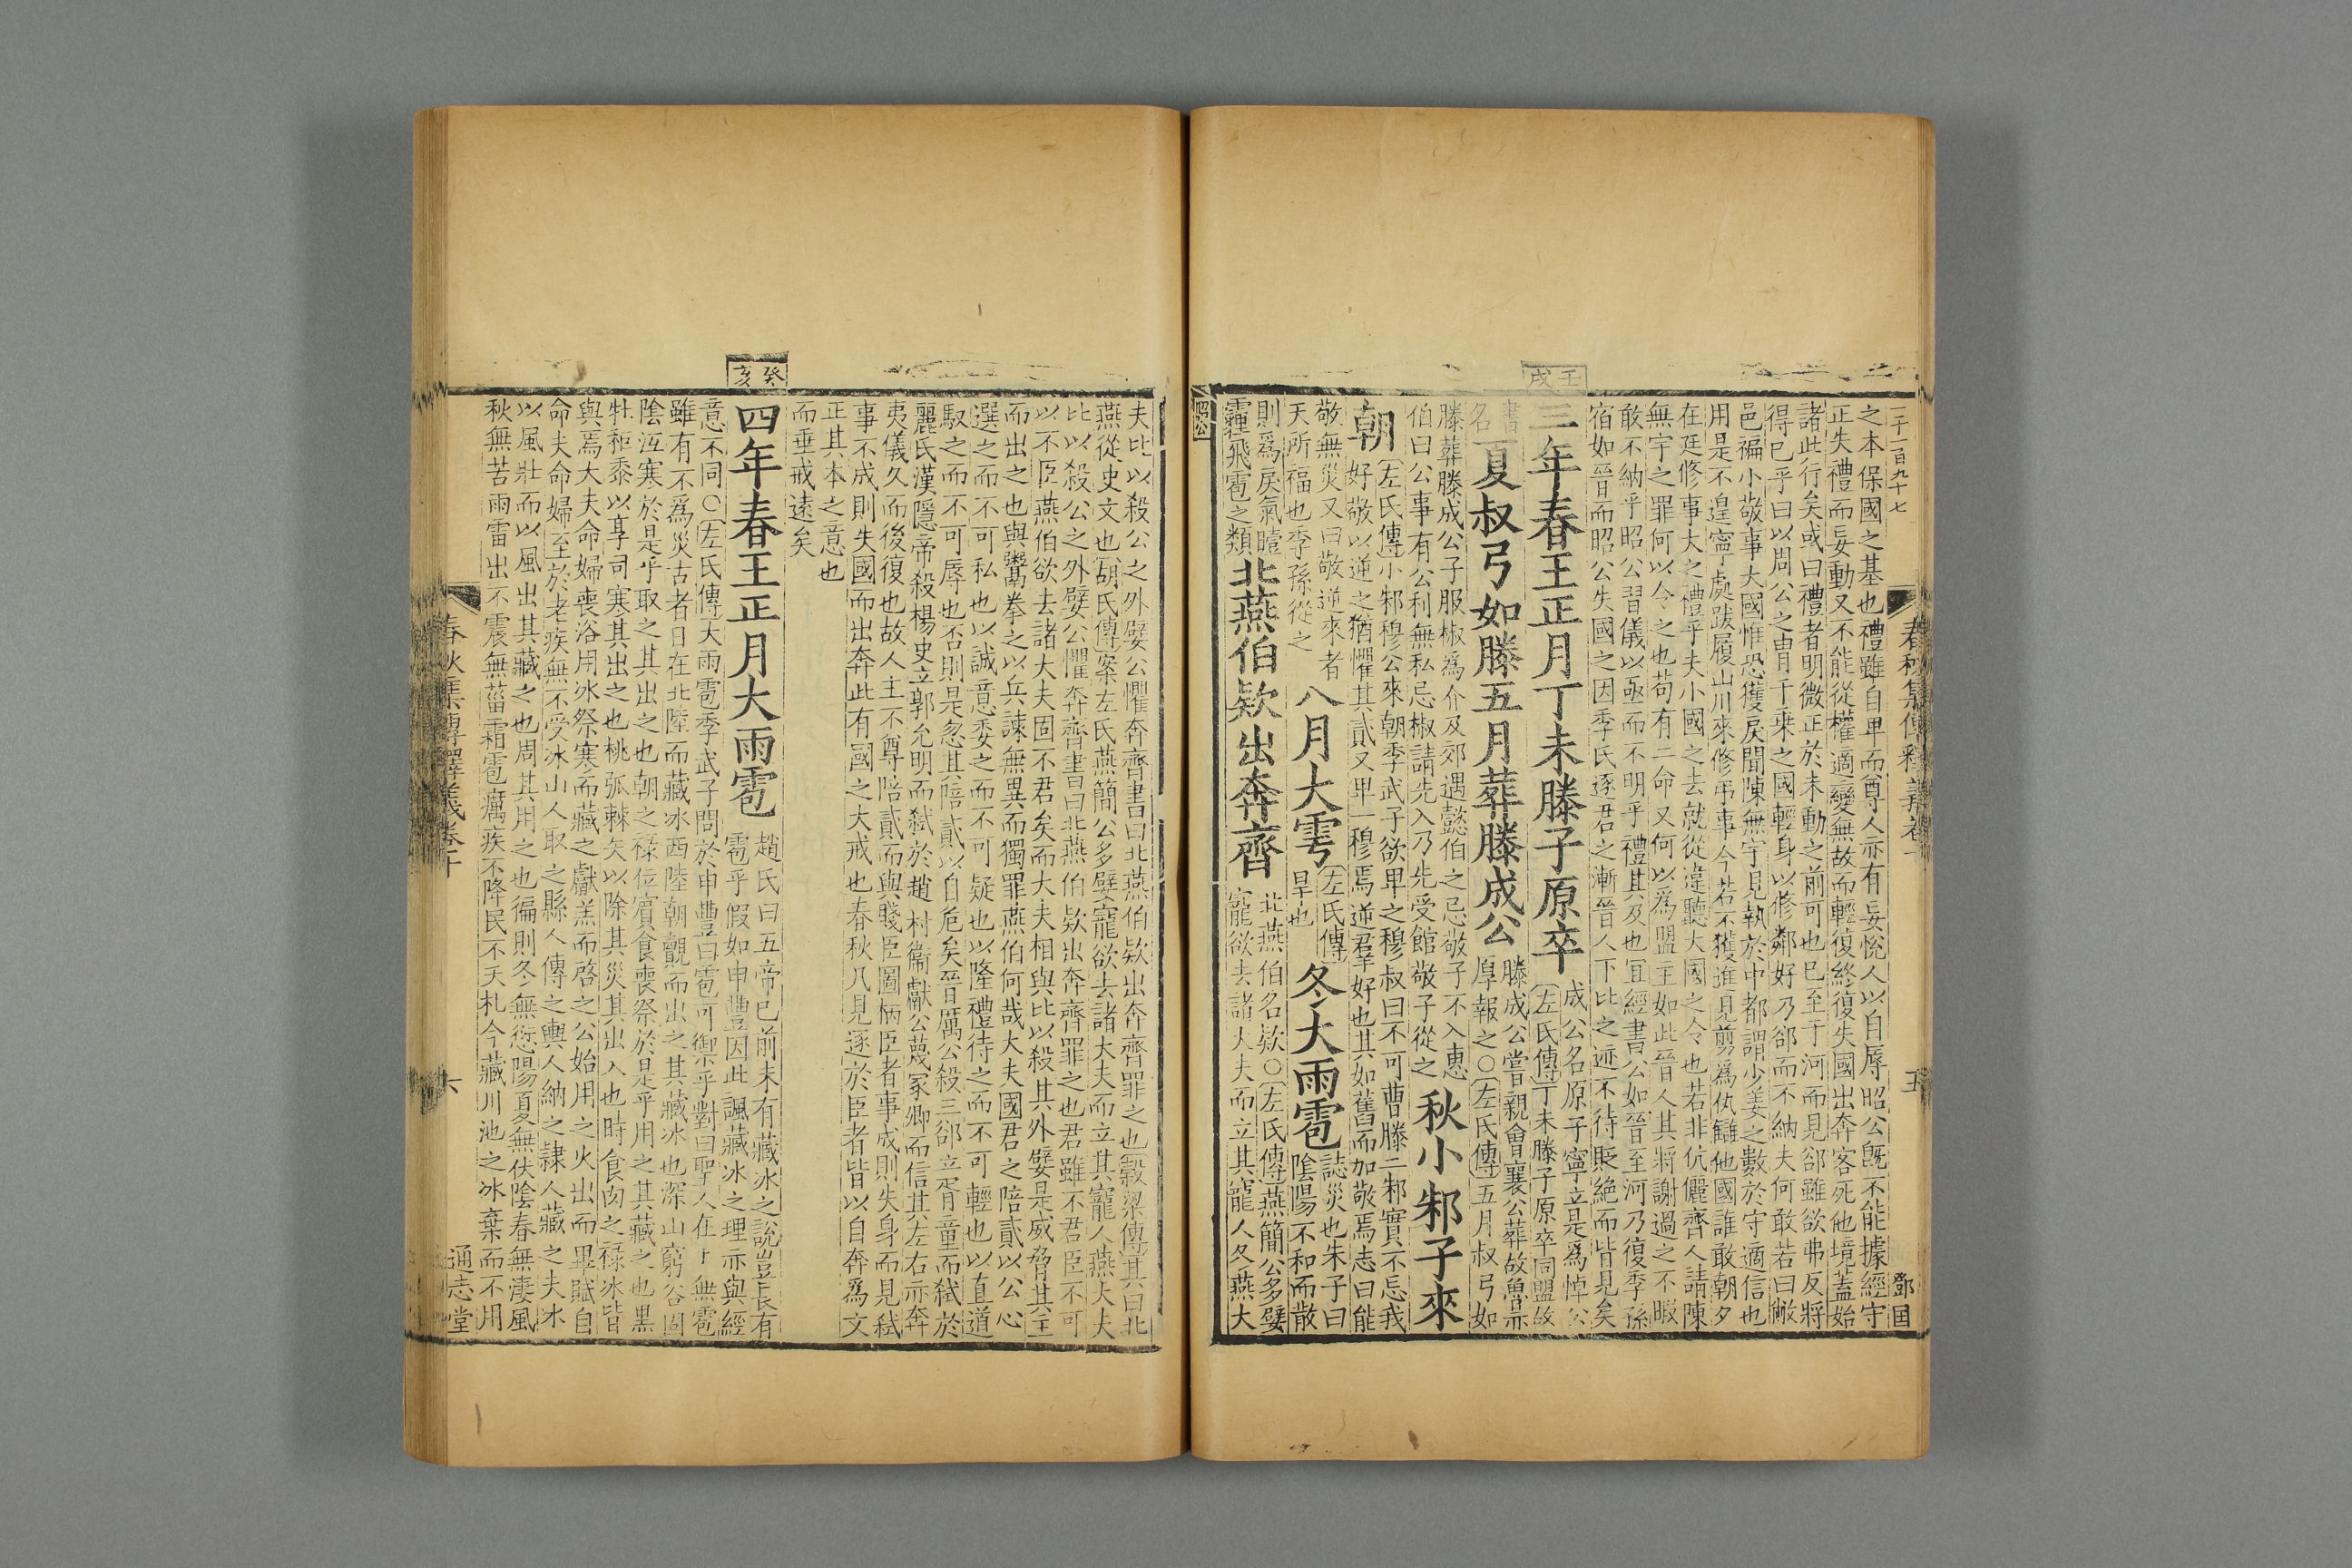 二千一百九十七
春秋集傳釋義卷十
五
鄧国
之本保國之基也禮雖自卑而尊人亦有妄悅人以自辱昭公旣不能據經守
正失禮而妄動又不能從權適變無故而輕復終復失國出奔客死他境蓋始
諸此行矣或曰禮者明微正於未動之前可也巳至于河而見郤雖欲弗反將
得巳乎曰以周公之胄千乗之國輕身以修鄰好乃郤而不納夫何敢若曰敝
邑褊小敬事大國惟恐獲戾聞陳無宇見執於中都謂少姜之數於守適信也
用是不遑寧處跋履山川來修弔事今若不獲進見剪為仇讎他國誰敢朝夕
在廷修事大之禮乎夫小國之去就從違聽大國之令也若非伉儷齊人請陳
無宇之罪何以令之也苟有二命又何以為盟主如此晉人其將謝過之不暇
敢不納乎昭公習儀以亟而不明乎禮其及也宜經書公如晉至河乃復季孫
宿如晉而昭公失國之因季氏逐君之漸晉人下比之迹不待貶絶而皆見矣
壬戌
三年春王正月丁未滕子原卒
成公名原子寧立是為悼公
〔左氏傳〕丁未滕子原卒同盟故
書
名
夏叔弓如滕五月葬滕成公
滕成公嘗親會襄公葬故魯示
厚報之○〔左氏傳〕五月叔弓如
滕葬滕成公子服椒為介及郊遇懿伯之忌敬子不入惠
伯曰公事有公利無私忌椒請先入乃先受館敬子從之
秋小邾子來
朝
〔左氏傳〕小邾穆公來朝季武子欲卑之穆叔曰不可曹滕二邾實不忘我
好敬以逆之猶懼其貳又卑一穆焉逆羣好也其如舊而加敬焉志曰能
敬無災又曰敬逆來者
天所福也季孫從之
八月大雩
〔左氏傳〕
旱也
冬大雨雹
誌災也朱子曰
隂陽不和而散
則為戾氣曀
霾飛雹之類
北燕伯欵出奔齊
北燕伯名欵○〔左氏傳〕燕簡公多嬖
寵欲去諸大夫而立其寵人冬燕大
昭公
夫比以殺公之外嬖公懼奔齊書曰北燕伯欵出奔齊罪之也〔穀梁傳〕其曰北
燕從史文也〔胡氏傳〕案左氏燕簡公多嬖寵欲去諸大夫而立其寵人燕大夫
比以殺公之外嬖公懼奔齊書曰北燕伯欵出奔齊罪之也君雖不君臣不可
以不臣燕伯欲去諸大夫固不君矣而大夫相與比以殺其外嬖是威脅其主
而出之也與鬻拳之以兵諫無異而獨罪燕伯何哉大夫國君之陪貳以公心
選之而不可私也以誠意委之而不可疑也以隆禮待之而不可輕也以直道
馭之而不可辱也否則是忽其陪貳以自危矣晉厲公殺三郤立胥童而弑於
麗氏漢隱帝殺楊史立郭允明而弑於趙村衞獻公蔑冢卿而信其左右亦奔
夷儀久而後復也故人主不尊陪貳而與賤臣圖柄臣者事成則失身而見弑
事不成則失國而出奔此有國之大戒也春秋凡見逐於臣者皆以自奔為文
正其本之意也
而垂戒遠矣
癸亥
四年春王正月大雨雹
趙氏曰五帝巳前未有藏冰之說豈長有
雹乎假如申豐因此諷藏冰之理亦與經
意不同○〔左氏傳〕大雨雹季武子問於申豐曰雹可禦乎對曰聖人在上無雹
雖有不為災古者日在北陸而藏冰西陸朝覿而出之其藏冰也深山窮谷固
隂沍寒於是乎取之其出之也朝之禄位賓食喪祭於是乎用之其藏之也黑
牡秬黍以享司寒其出之也桃弧棘矢以除其災其出入也時食肉之禄冰皆
與焉大夫命婦喪浴用冰祭寒而藏之獻羔而啓之公始用之火出而畢賦自
命夫命婦至於老疾無不受冰山人取之縣人傳之輿人納之隷人藏之夫冰
以風壯而以風出其藏之也周其用之也徧則冬無愆陽夏無伏陰春無淒風
秋無苦雨雷出不震無菑霜雹癘疾不降民不夭札今藏川池之冰棄而不用
春秋集傳釋義卷十
六
通志堂